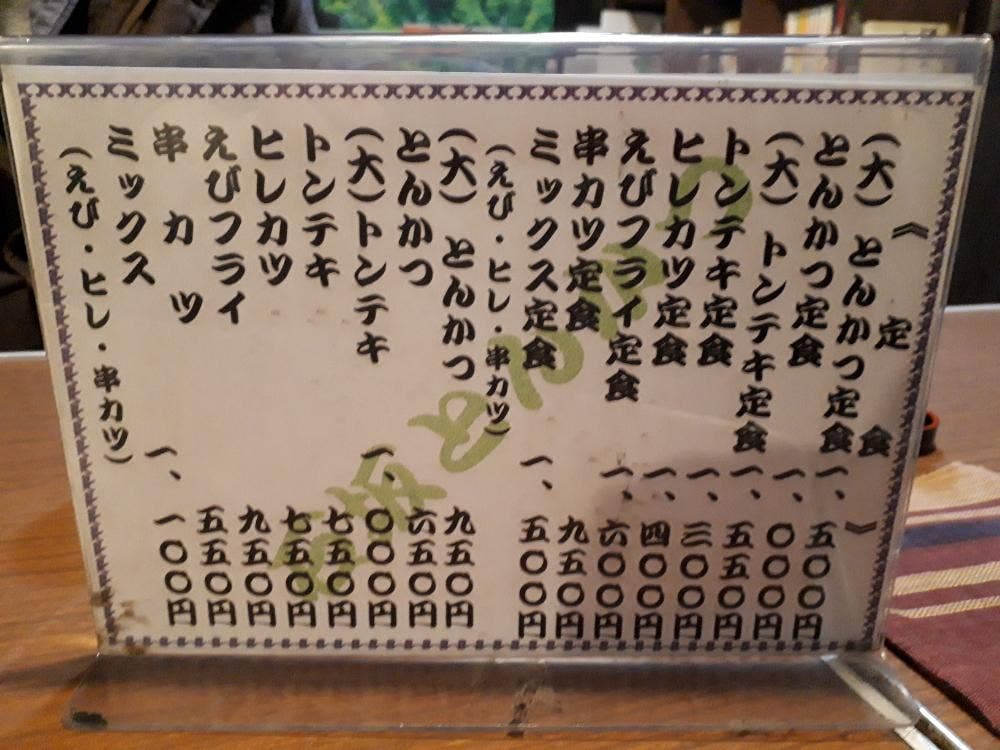 《定食》
（大）とんかつ定食 一、五〇〇円
とんかつ定食 一、〇〇〇円
（大）トンテキ定食 一、五五〇円
トンテキ定食 一、三〇〇円
ヒレカツ定食 一、四〇〇円
えびフライ定食 一、六〇〇円
串カツ定食 九五〇円
ミックス定食 一、五〇〇円
（えび・ヒレ・串カツ）
（大）とんかつ 九五〇円
とんかつ 六五〇円
（大）トンテキ 一、〇〇〇円
トンテキ 七五〇円
ヒレカツ 七五〇円
えびフライ 九五〇円
串カツ 五五〇円
ミックス 一、一〇〇円
（えび・ヒレ・串カツ）